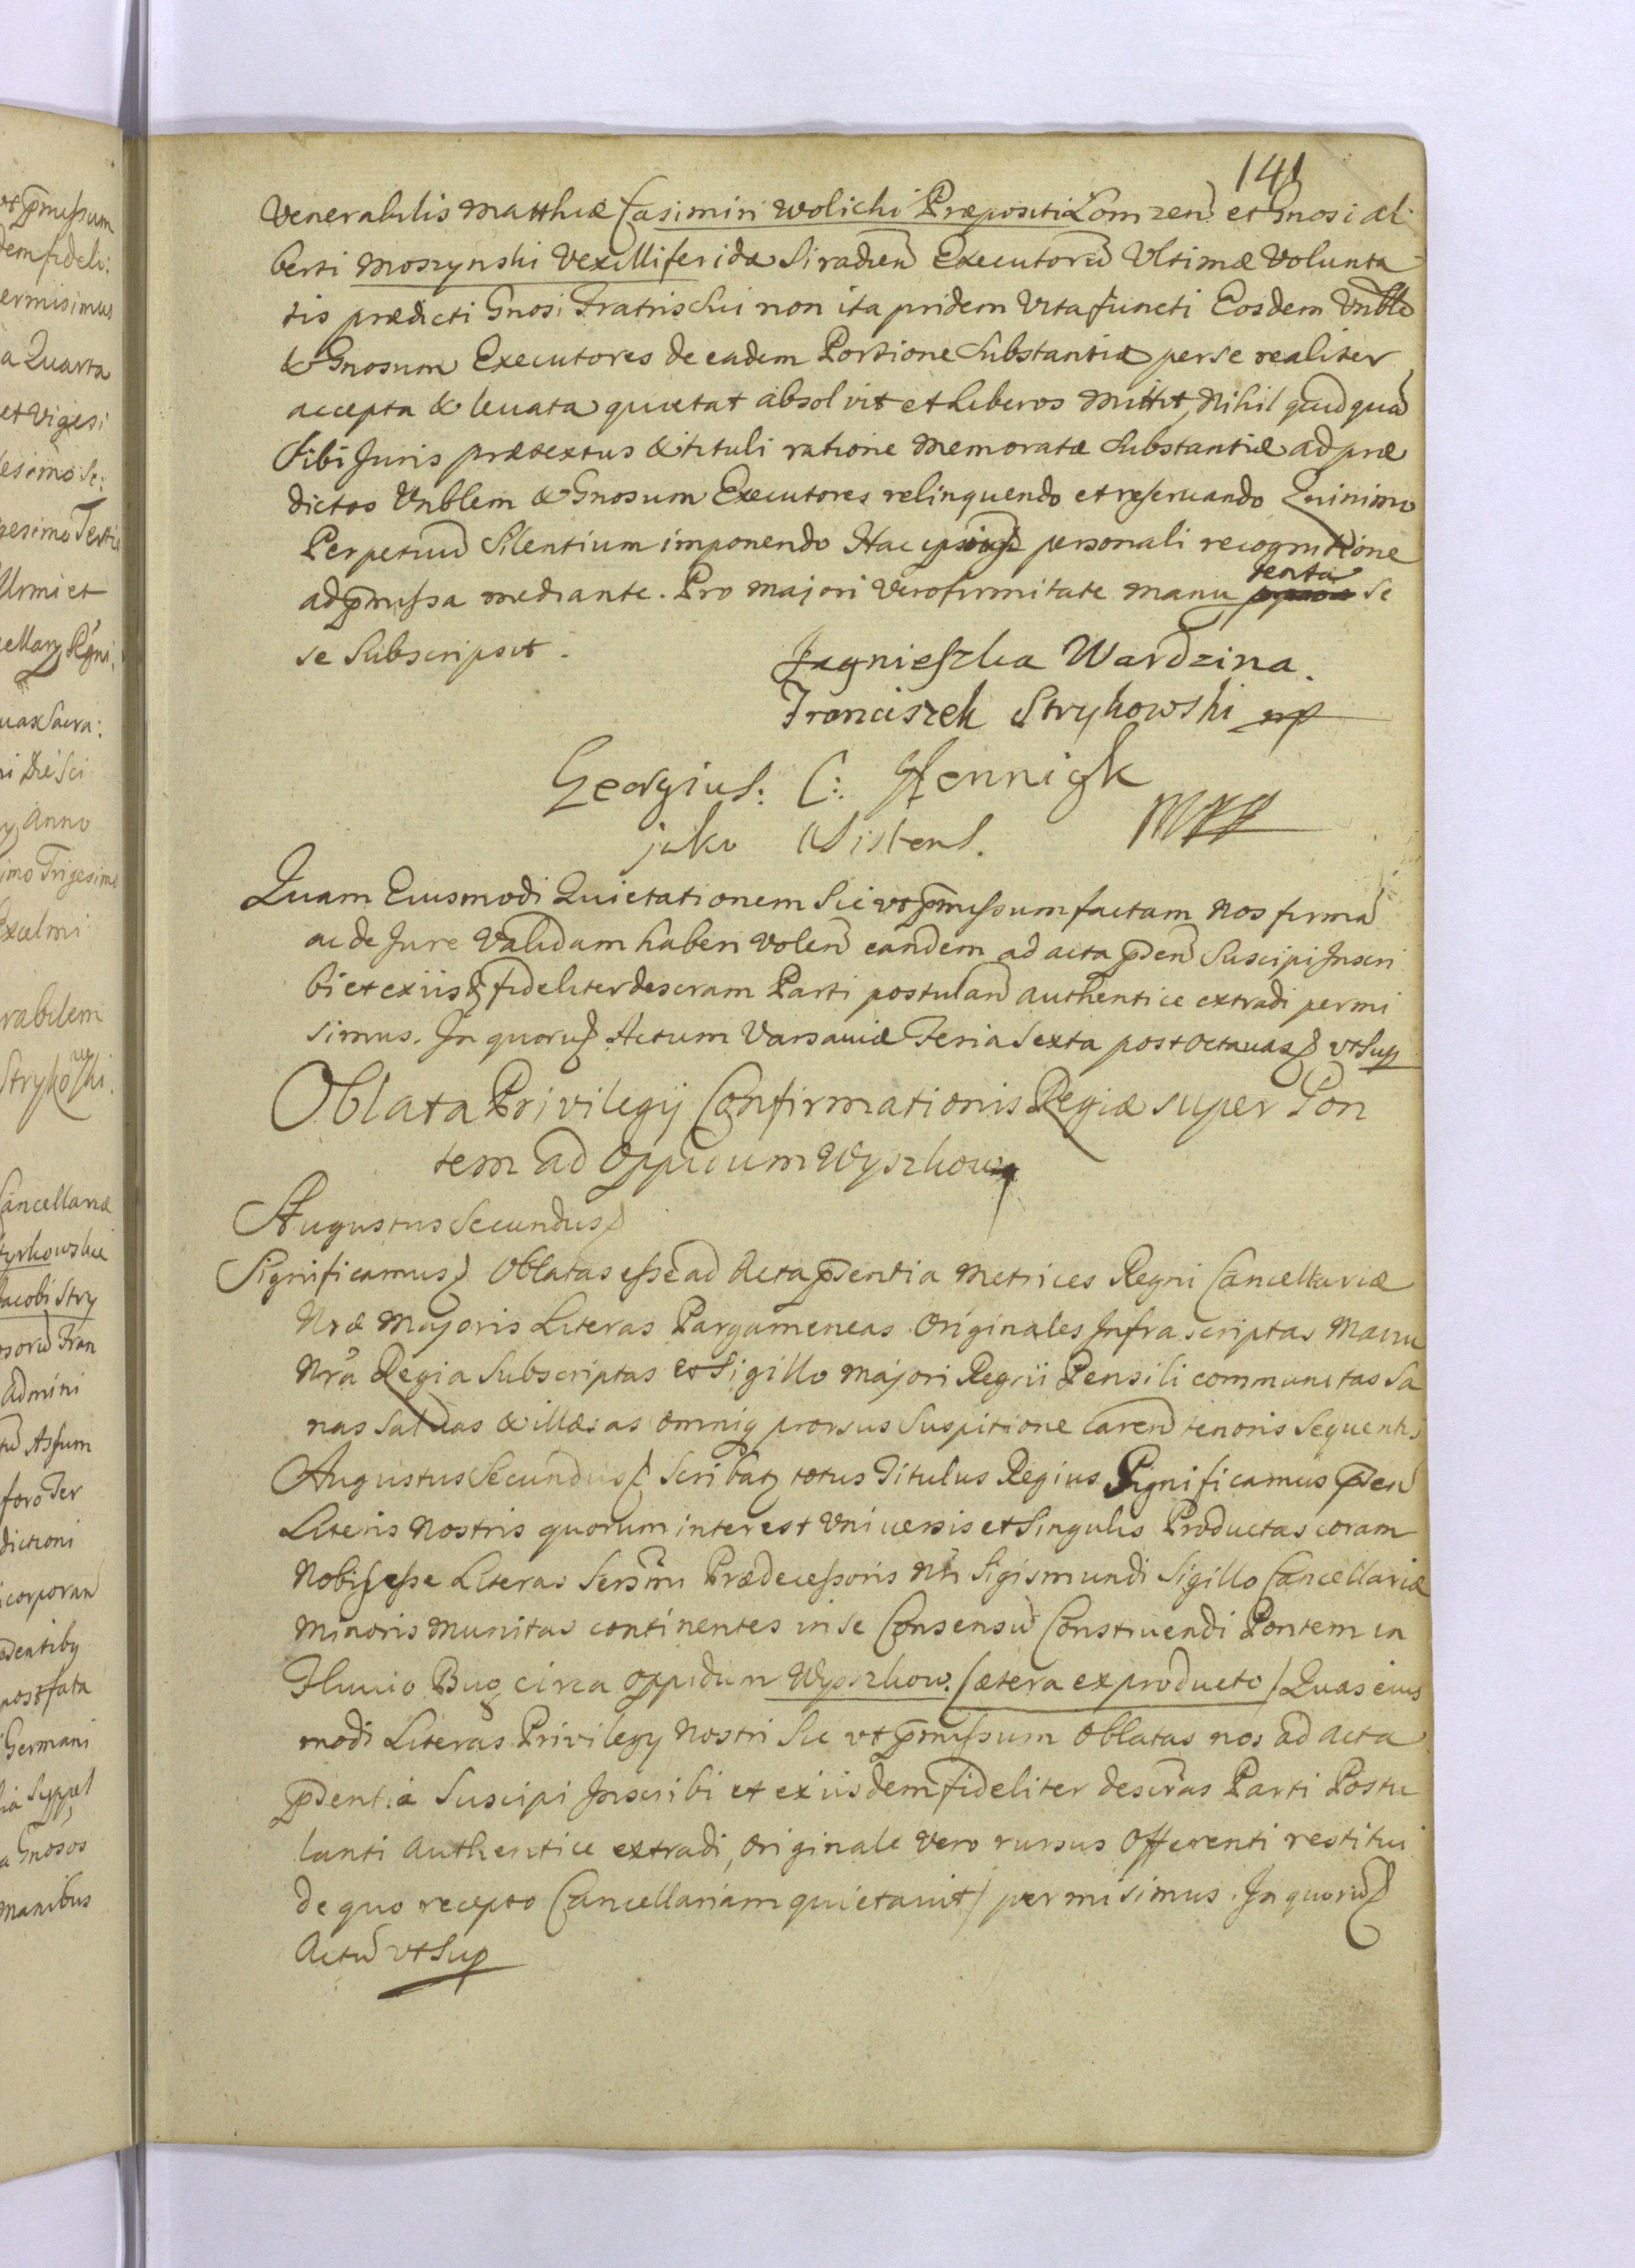 141
Venerabilis Matthiæ Casimiri Wolicki Præpositi Lomzen: et Gnosi Al
berti Moszynski Vexilliferidæ Siradien Executorũ Ultimæ Volunta
tis prædicti Gnosi Fratris Sui non ita pridem Vita functi Eosdem Vnble
& Gnosum Executores de eadem Portione Substantiæ per se realiter
accepta & levata quietat absolvit et liberos mittit, Nihil quidquã
Sibi Juris prætextus & tituli ratione memoratæ Substantiæ ad præ
dictos Vnblem & Gnosum Executores relinquendo et reservando Quinimo
Perpetuũ Silentium imponendo Hac personali recognitione
ad p̃missa mediante. Pro majori vero firmitate manu tenta se
se Subscripsit.
Jagnieszka Wardzina.
Franciszek Strykowski mp
Georgius: C: Hennigk
jako Asistens. Mpp
Quam Eiusmodi Quietationem Sic vt p̃missum factam Nos firmã
ac de Jure Validam haberi volen eandem ad acta p̃sen Suscipi Inscri
bi et ex iisd fideliter descram Parti postulan authentice extradi permi
simus. In quorũ Actum Varsaviæ Feria Sexta post Octavas vt Sup
Oblata Privilegij Confirmationis Regiæ super Pon
tem ad Oppidum Wyszkow
Augustus Secundus
Significamus Oblatas esse ad Acta p̃sentia Metrices Regni Cancellariæ
Nræ Majoris Literas Pargameneas Originales Infrascriptas Manu
Nrã Regia Subscriptas et Sigillo majori Regni Pensili communitas Sa
nas Salvas & illæsas omniq prorsus Suspitione Caren tenoris Sequentis
Augustus Secundus Scribatz totus Titulus Regius Significamus p̃sen
Literis Nostris quorum interest Vniversis et Singulis Productas coram
Nobis esse Literas Sersmi Prædecessoris Nri Sigismundi Sigillo Cancellariæ
Minoris munitas continentes in se Consensũ Construendi Pontem in
Fluvio Bug circa Oppidum Wyszkow. (ætera ex producto) Quas eius
modi Literas Privilegy Nostri Sic vt p̃missum Oblatas nos ad Acta
p̃sentia Suscipi Inscribi et ex iisdem fideliter descras Parti Postu
lanti Authentice extradi, Originale vero rursus Offerenti restitui
de quo recepto Cancellariam quietavit) permisimus. In quorũ
Actũ vt Sup